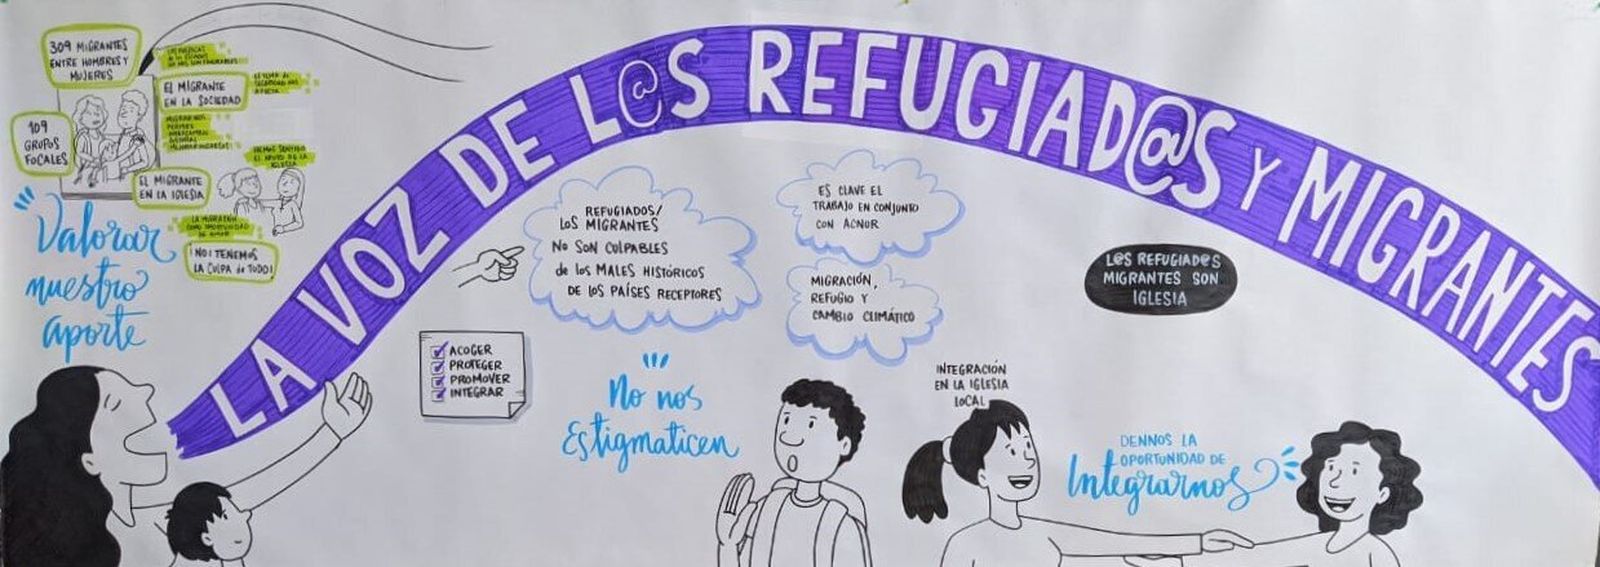 LA VOZ DE L@S REFUGIAD@S Y MIGRANTES
309 MIGRANTES
ENTRE HOMBRES Y
MUJERES
109
GRUPOS
FOCALES
EL MIGRANTE
EN LA SOCIEDAD
EL MIGRANTE
EN LA IGLESIA
HEMOS SENTIDO
EL APOYO DE LA
IGLESIA
LA MIGRACIÓN
COMO OPORTUNIDAD
¡NO! TENEMOS
LA CULPA de TODO!
Valorar
nuestro
aporte
ACOGER
PROTEGER
PROMOVER
INTEGRAR
REFUGIADOS/
LOS MIGRANTES
NO SON CULPABLES
de los MALES HISTÓRICOS
DE LOS PAÍSES RECEPTORES
No nos
Estigmaticen
ES CLAVE EL
TRABAJO EN CONJUNTO
CON ACNUR
MIGRACIÓN,
REFUGIO Y
CAMBIO CLIMÁTICO
L@S REFUGIAD@S
MIGRANTES SON
IGLESIA
INTEGRACIÓN
EN LA IGLESIA
LOCAL
DENNOS LA
OPORTUNIDAD DE
Integrarnos